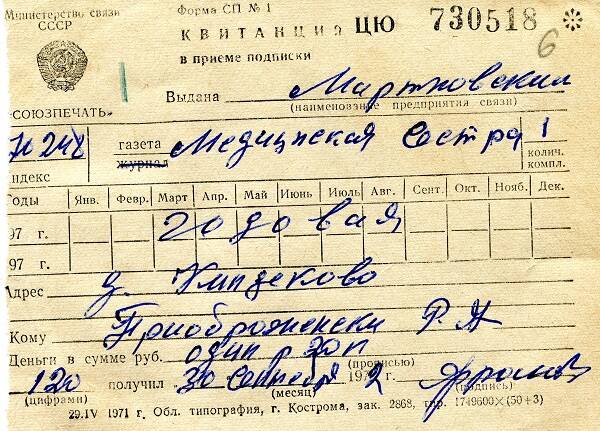 Министерство связи СССР
Форма СП № 1
КВИТАНЦИЯ ЦЮ 730518 6
в приеме подписки
Выдана
(наименовзние предприятия связи)
«СОЮЗПЕЧАТЬ»
70248 газета Медицинская Сестра 1
журнал
ндекс колич. компл.
Годы Янв. Февр. Март Апр. Май Июнь Июль Авг. Сент. Окт. Нояб. Дек.
97 г. годовая
97 г.
Адрес д.
Кому Р. А
Деньги в сумме руб. один р 20п
(прописью)
120 получил 30 Сентября 197 2 г.
(цифрами) (месяц) (подпись)
29.IV 1971 г. Обл. типография, г. Кострома, зак. 2868, тир. 1749600×(50+3)